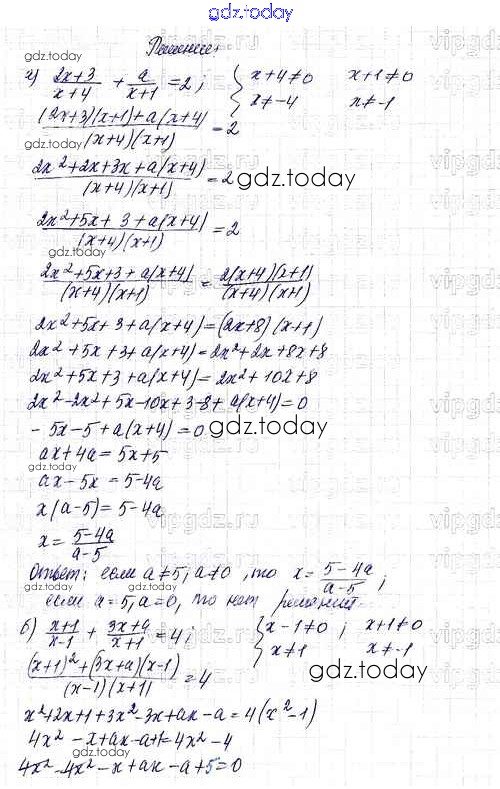 gdz.today
Решение:
а) (2x+3)/(x+4) + a/(x+1) = 2; { x+4≠0 x+1≠0
x≠-4 x≠-1
((2x+3)(x+1)+a(x+4))/((x+4)(x+1)) = 2
(2x²+2x+3x+a(x+4))/((x+4)(x+1)) = 2
gdz.today
(2x²+5x+3+a(x+4))/((x+4)(x+1)) = 2
(2x²+5x+3+a(x+4))/((x+4)(x+1)) = (2(x+4)(x+1))/((x+4)(x+1))
2x²+5x+3+a(x+4)=(2x+8)(x+1)
2x²+5x+3+a(x+4)=2x²+2x+8x+8
2x²+5x+3+a(x+4)=2x²+10x+8
2x²-2x²+5x-10x+3-8+a(x+4)=0
-5x-5+a(x+4)=0
gdz.today
ax+4a=5x+5
ax-5x=5-4a
x(a-5)=5-4a
x=(5-4a)/(a-5)
Ответ: если a≠5, a≠0, то x=(5-4a)/(a-5);
если a=5, a=0, то нет решений.
б) (x+1)/(x-1) + (3x+a)/(x+1) = 4; { x-1≠0; x+1≠0
x≠1 x≠-1
((x+1)²+(3x+a)(x-1))/((x-1)(x+1)) = 4
gdz.today
x²+2x+1+3x²-3x+ax-a=4(x²-1)
4x²-x+ax-a+1=4x²-4
4x²-4x²-x+ax-a+5=0